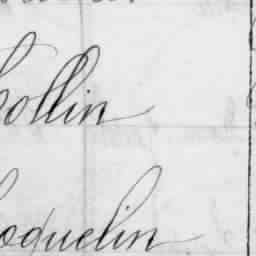 Collin
Coquelin